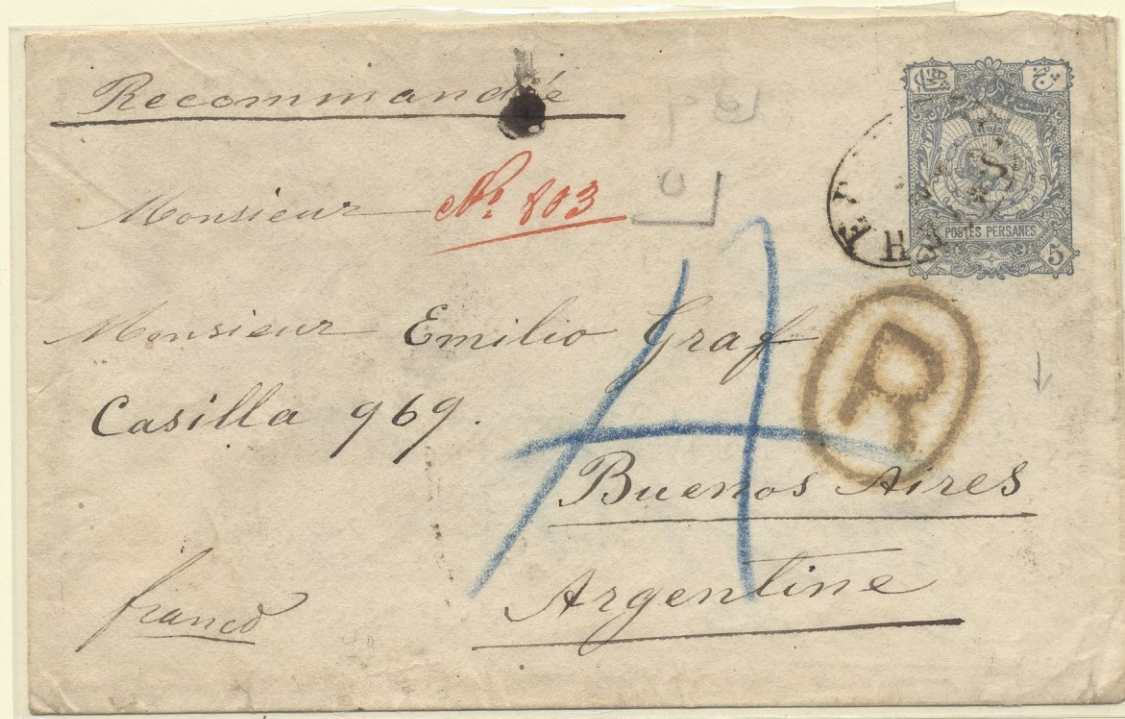 Recommandé
Monsieur Nº 803
پنج
شاهی
POSTES PERSANES
5
R
Monsieur Emilio Graf
Casilla 969.
A
Buenos Aires
Argentine
franco